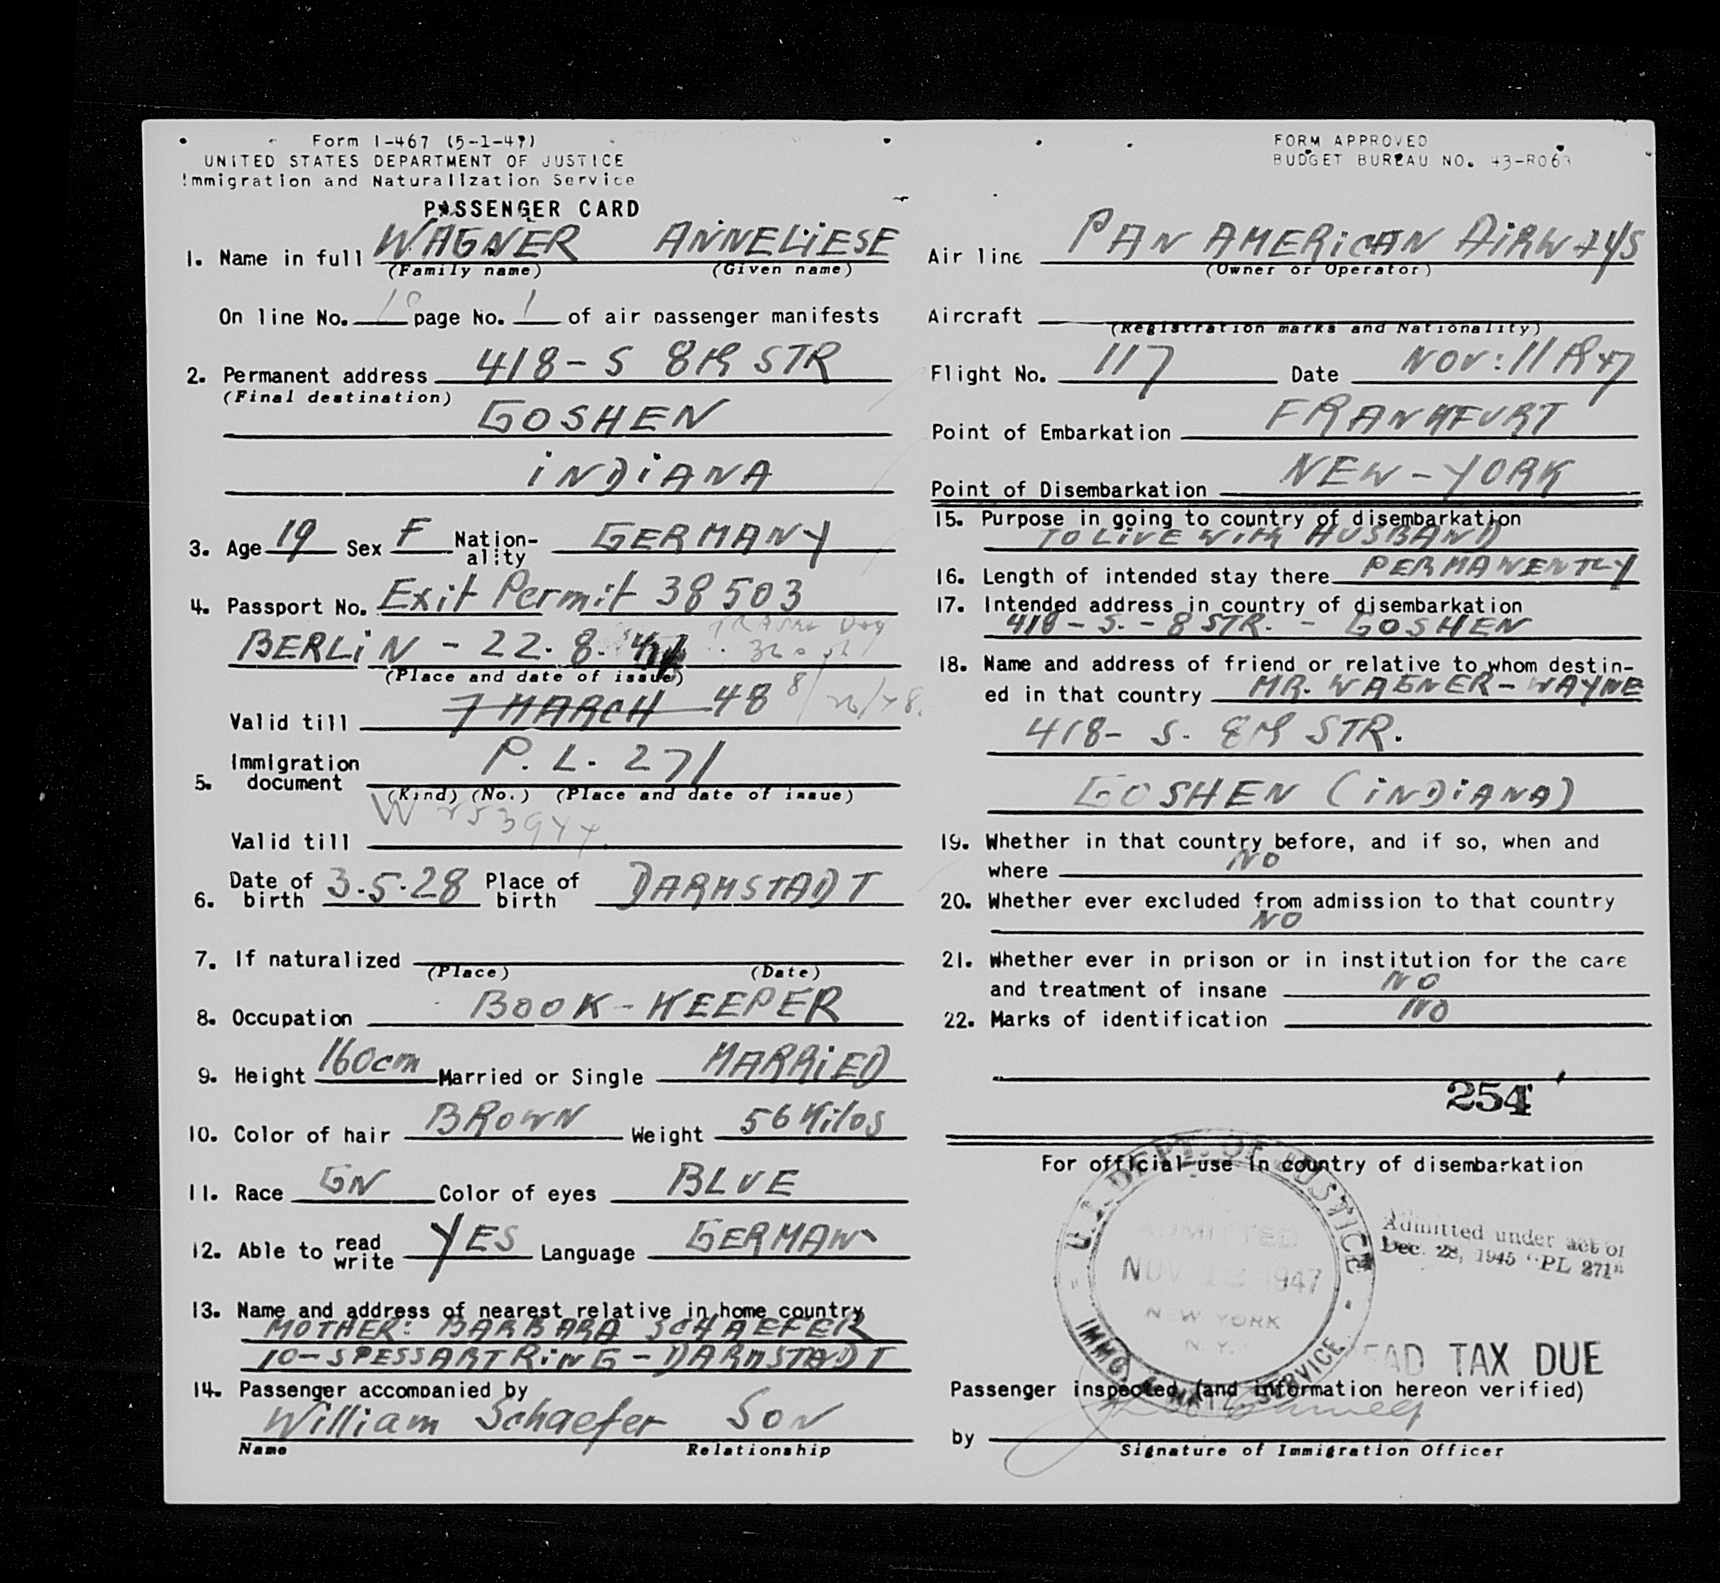 Form I-467 (5-1-47)
UNITED STATES DEPARTMENT OF JUSTICE
Immigration and Naturalization Service
PASSENGER CARD
1. Name in full WAGNER ANNELIESE
(Family name) (Given name)
On line No. page No. 1 of air passenger manifests
2. Permanent address 418-S 8th STR
(Final destination)
GOSHEN
INDIANA
3. Age 19 Sex F Nation-ality GERMANY
4. Passport No. Exit Permit 38503
BERLIN - 22.8.
(Place and date of issue)
Valid till 7 MARCH 48
5. Immigration document P.L. 271
(Kind) (No.) (Place and date of issue)
Valid till
6. Date of birth 3.5.28 Place of birth DARMSTADT
7. If naturalized
(Place) (Date)
8. Occupation BOOK-KEEPER
9. Height 160cm Married or Single MARRIED
10. Color of hair BROWN Weight 56 Kilos
11. Race GN Color of eyes BLUE
12. Able to read write YES Language GERMAN
13. Name and address of nearest relative in home country
MOTHER: BARBARA SCHAEFER
10-SPESSARTRING-DARMSTADT
14. Passenger accompanied by
William Schaefer SON
Name Relationship
FORM APPROVED
BUDGET BUREAU NO. 43-R063
Air line PAN AMERICAN AIRWAYS
(Owner or Operator)
Aircraft
(Registration marks and Nationality)
Flight No. 117 Date NOV: 11th 47
Point of Embarkation FRANKFURT
Point of Disembarkation NEW-YORK
15. Purpose in going to country of disembarkation
TO LIVE WITH HUSBAND
16. Length of intended stay there PERMANENTLY
17. Intended address in country of disembarkation
418-S.-8 STR. - GOSHEN
18. Name and address of friend or relative to whom destin-
ed in that country MR. WAGNER-WAYNE
418- S. 8th STR.
GOSHEN (INDIANA)
19. Whether in that country before, and if so, when and
where NO
20. Whether ever excluded from admission to that country
NO
21. Whether ever in prison or in institution for the care
and treatment of insane NO
22. Marks of identification NO
254
For official use in country of disembarkation
U.S. DEPT. OF JUSTICE
ADMITTED
NOV 12 1947
NEW YORK
N.Y.
IMMG. & NATZ. SERVICE
Admitted under act of
Dec. 28, 1945 "PL 271"
HEAD TAX DUE
Passenger inspected (and information hereon verified)
by
Signature of Immigration Officer